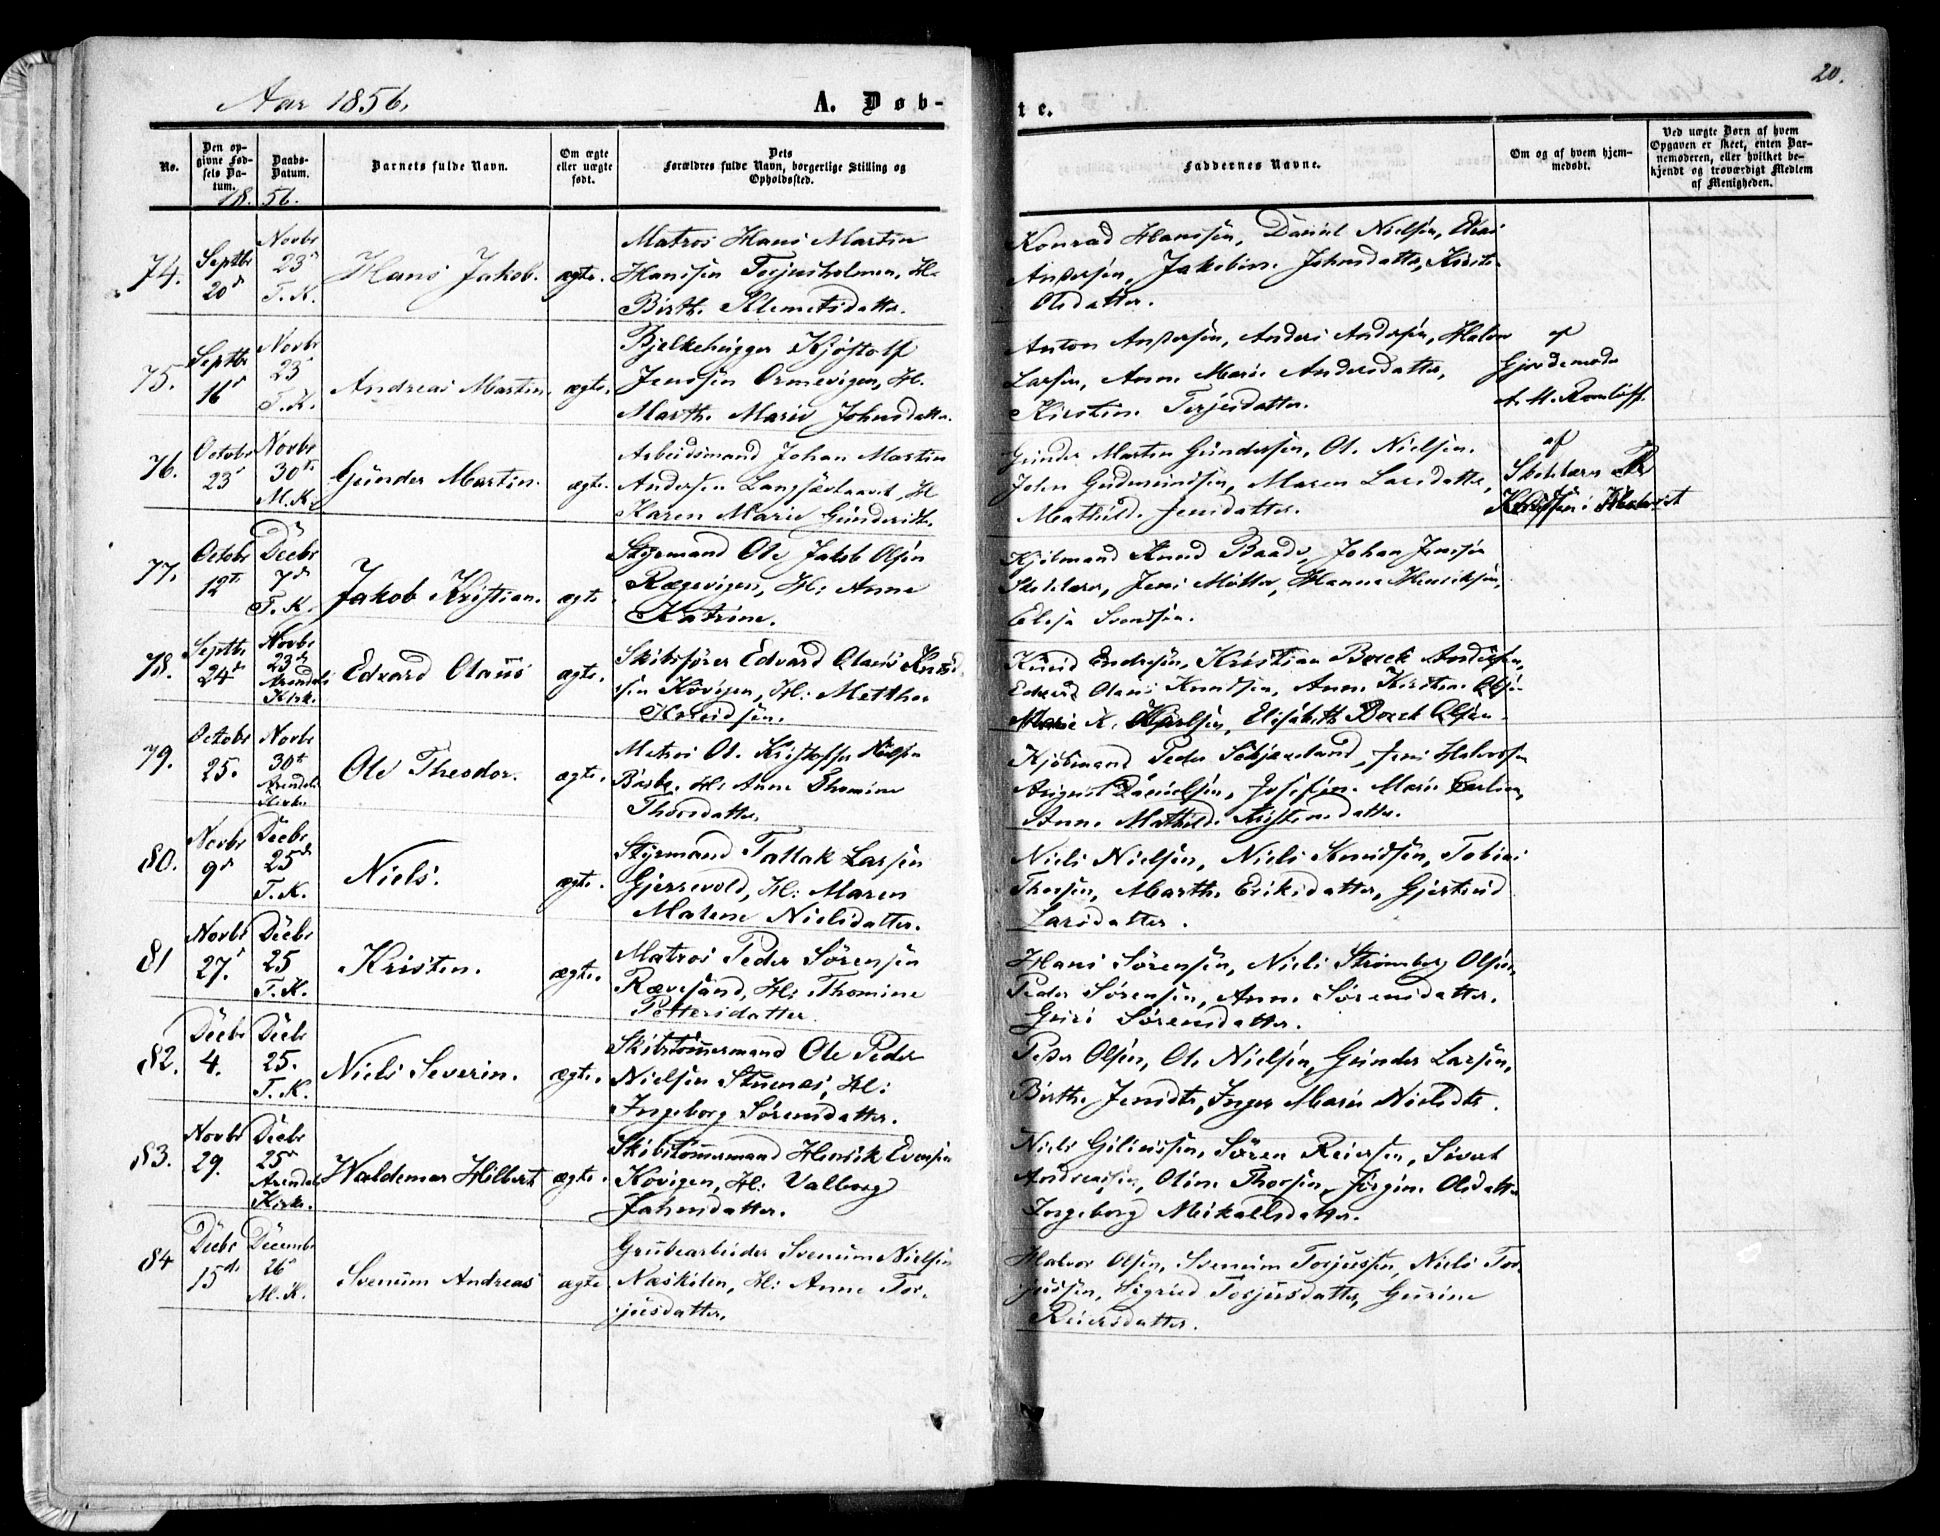 Aar 1856.
A. Døb-
te.
20.
No.
Den op-
givne Fød-
sels Da-
tum.
Daabs-
Datum.
Barnets fulde Navn.
Om ægte
eller uægte
født.
Dets
Forældres fulde Navn, borgerlige Stilling og
Opholdssted.
Faddernes Navne.
Om og af hvem hjem-
medøbt.
Ved uægte Børn af hvem
Opgaven er skeet, enten Bar-
nemoderen, eller hvilket be-
kjendt og troværdigt Medlem
af Menigheden.
18. 56.
74.
Septbr
20de
Novbr
23de
T. K.
Hans Jakob.
ægte.
Matros Hans Martin
Hanssen Torjusholmen, H:
Birthe Klemetsdatter.
Konrad Hanssen, Daniel Nielsen,
Andersen, Jakobine Johnsdatter, Kirste
Olsdatter.
75.
Septbr
16de
Novbr
23de
T. K.
Andreas Martin.
ægte.
Bjelkehugger Kjøstolf
Jenssen Ormevigen, H:
Marthe Marie Johnsdatter.
Anton Andersen, Anders Andersen, Halvor
Larsen, Anne Marie Andersdatter,
Kirstine Terjesdatter.
af
Gjordemoder
A. M.
76.
Octobr
23de
Novbr
30te
M. K.
Günder Martin.
ægte.
Arbeidsmand Johan Martin
Andersen H
Karen Marie
Günder Martin Gündersen, Ole Nielsen.
John Gudmundsen, Maren Larsdatter,
Mathilde Jensdatter.
af
Skolelærer
77.
Octobr
12te
Decbr
7de
T. K.
Jakob Kristian.
ægte
Styrmand Ole Jakob Olsen
Rægevigen, H: Anne
Katrine.
Kjøbmand Knud Baade, Johan Jenssen
Skolelærer, Jens Møller, Hanna Henriksen,
Elisa Svendsen.
78.
Septbr
24de
Novbr
23de
Arendals
Kirke.
Edvard Olaus
ægte.
Skibsfører Edvard Olaus Knud-
sen Kovigen, H: Metthea
Knudsen.
Knud Endresen, Kristian Boeck Andersen,
Edvard Olaus Knudsen, Anne Kirstine Olsen
Marie K. Karlsen, Elisabeth Boeck Olsen.
79.
Octobr
25.
Novbr
30te
Arendals
Kirke
Ole Theodor.
ægte.
Matros Ole Kristoffer Nielsen
H: Anne Thomine
Thorsdatter.
Kjøbmand Peder Jens Halvorsen
August Danielsen, Josefine Marie
Anne Mathilde Kristensdatter.
80.
Novbr
9de
Decbr
25de
T. K.
Niels.
ægte.
Styrmand Tallak Larsen
Gjersevold, H: Maren
Malene Nielsdatter.
Niels Nielsen, Niels Knudsen, Tobias
Thorsen, Marthe Eriksdatter, Gjertrud
Larsdatter.
81
Novbr
27de
Decbr
25
T. K.
Kristen.
ægte.
Matros Peder Sørensen
Rævesand, H: Thomine
Pettersdatter.
Hans Sørensen, Niels Strømberg Olsen,
Peder Sørensen, Anne Sørensdatter.
Guri Sørensdatter.
82.
Decbr
4.
Decbr
25.
T. K.
Niels Severin.
ægte.
Skibstømmermand Ole Peder
Nielsen Stuenæs, H:
Ingeborg Sørensdatter.
Peder Olsen, Ole Nielsen, Günder Larsen,
Birthe Jensdtr, Inger Marie Nielsdtr.
83.
Novbr
29.
Decbr
25de
Arendals
Kirke.
Waldemar Hilbert
ægte.
Skibstømmermand Henrik Evensen
Kovigen, H: Valborg
Johnsdatter.
Niels Søren Reiersen, Sivert
Andreassen, Oline Thorsen, Jørgine Olsdatter
Ingeborg Mikaelsdatter.
84
Decbr
15de
Decembr
26de
M. K.
Svenum Andreas
ægte.
Grubearbeider Svenum Nielsen
Næskilen, H: Anne Tor-
jusdatter.
Halvor Olsen, Svenum Torjussen, Niels Tor-
jussen, Sigrid Torjusdatter, Gurine
Reiersdatter.